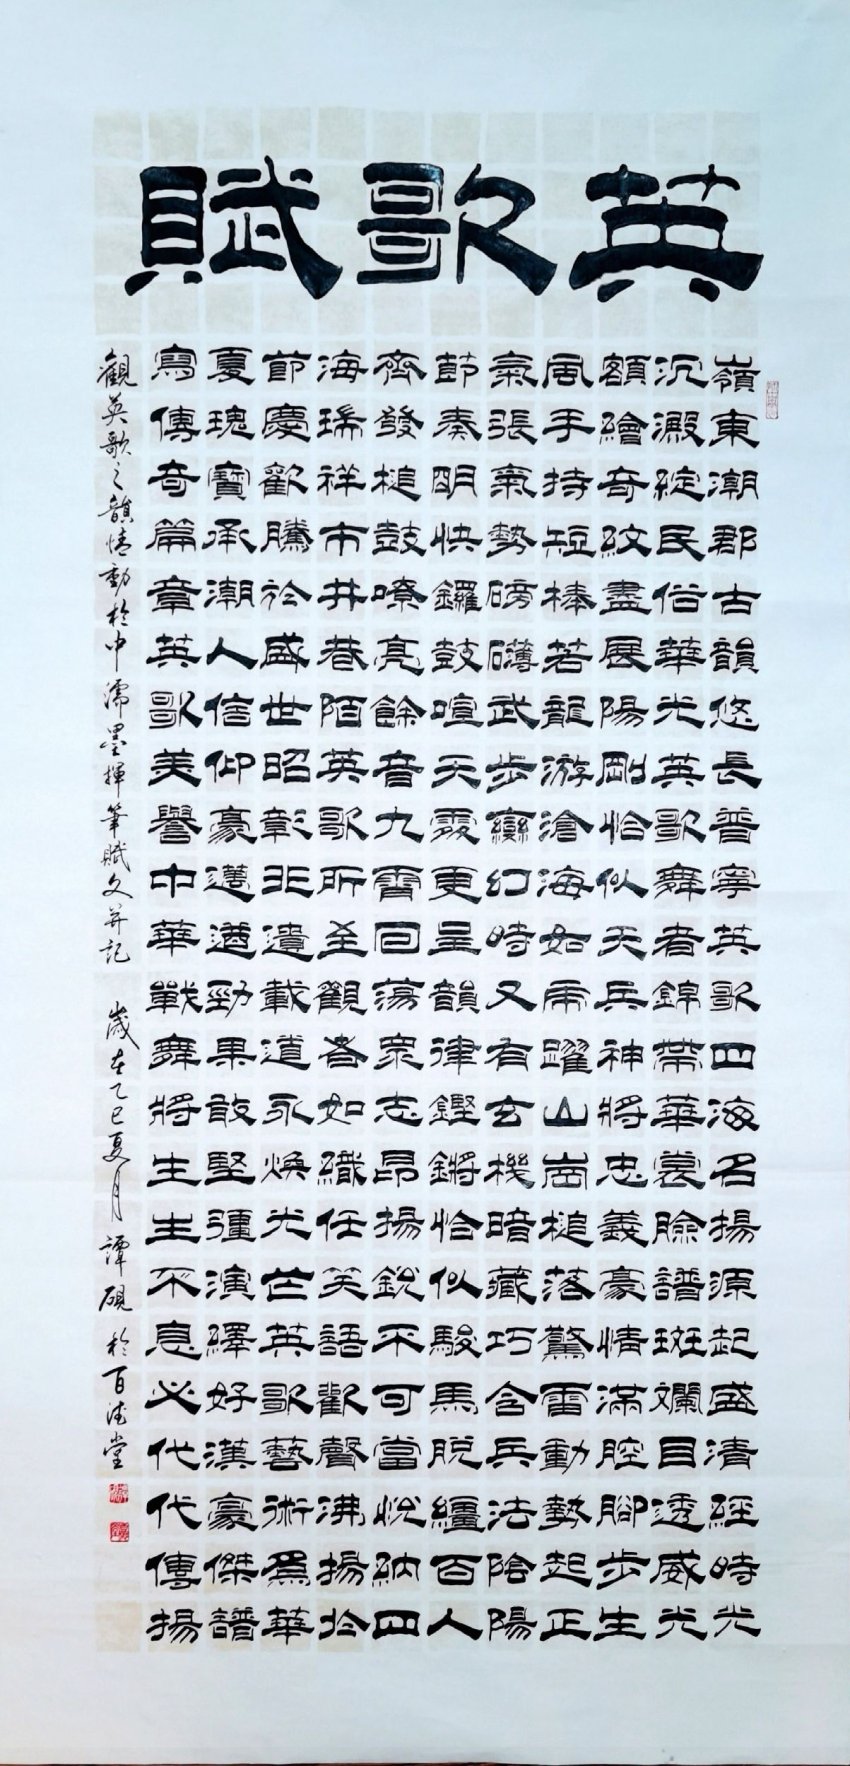 英歌賦
嶺東潮郡古韻悠長普寧英歌四海名揚源起盛清經時光
沉澱綻民俗華光英歌舞者錦帶華裳臉譜斑斕目透威光
額繪奇紋盡展陽剛恰似天兵神將忠義豪情滿腔腳步生
風手持短棒若龍游滄海如虎躍山崗槌落驚雷動勢起正
氣張氣勢磅礴武步變幻時又有玄機暗藏巧含兵法陰陽
節奏明快鑼鼓喧天震更呈韻律鏗鏘恰似駿馬脫繮百人
齊發槌鼓嘹亮餘音九霄回蕩衆志昂揚銳不可當悅納四
海瑞祥市井巷陌英歌所至觀者如織任笑語歡聲沸揚於
節慶歡騰於盛世昭彰非遺載道永煥光芒英歌藝術爲華
夏瑰寶承潮人信仰豪邁遒勁果敢堅彊演繹好漢豪傑譜
寫傳奇篇章英歌美譽中華戰舞將生生不息必代代傳揚
觀英歌之韻情動於中濡墨揮筆賦文并記 歲在乙巳夏月 譚硯 於百德堂